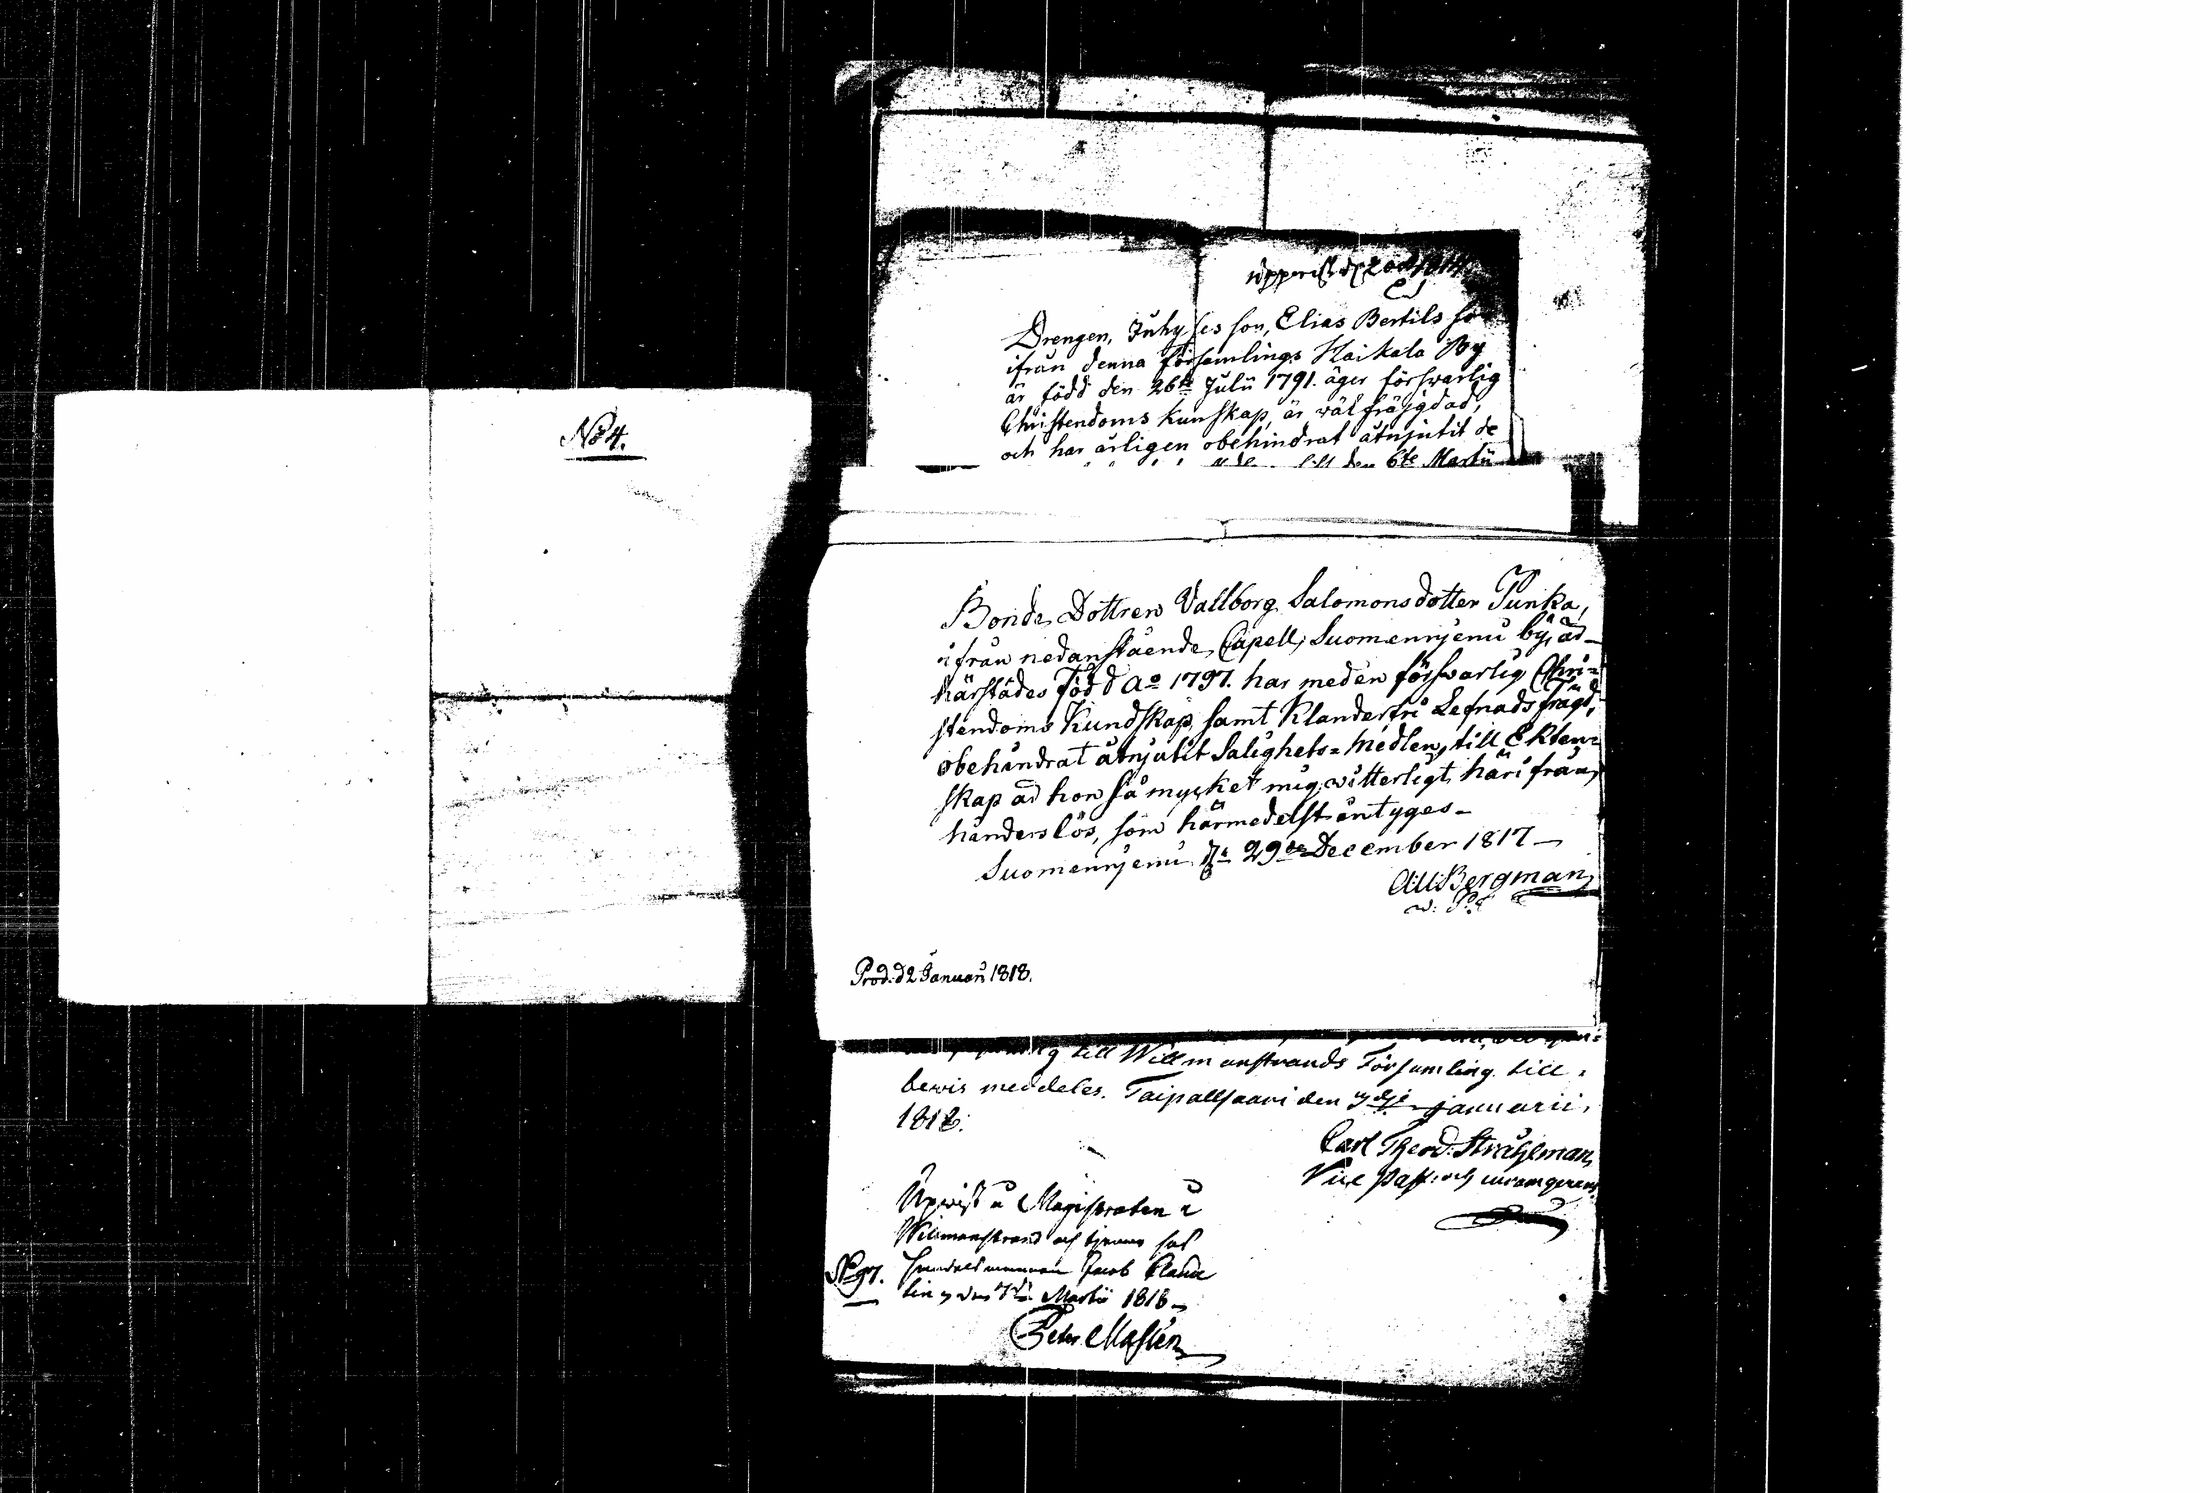 No 4.
Drengen, Juhy ses son, Elias Bertils so
ifrån denna församlings Haikala By
är född den 26te Julii 1791. äger förswarlig
Christendoms kunskap, är wäl fräjgdad,
och har årligen obehindrat åtnjutit de
den 6te Martii
Bonde Dottren Vallborg Salomonsdotter Punka,
ifrån nedanstående Capell, Suomennjemi by, äd-
härstädes född Ao 1797. har med en förswarlig Chri-
stendoms Kundskap, samt Klanderfri Lefnads frägd,
obehindrat åtnjutit Salighets-medlen, till Ekten-
skap är hon så mycket mig witterligt, härifrån,
hinderslös, som härmedelst intygas-
Suomennjemi 29de December 1817 -
Bergman
w: P:
Prod: d 2 Januari 1818.
till Willmanstrands Församling till
bewis meddeles. Taipallsaari den januarii,
1818.
Carl Theod: Stråhlman
Vice Past: och
Upwist å Magistraten i
Willmanstrand och
No 97. Jacob
den Martii 1818 -
Peter